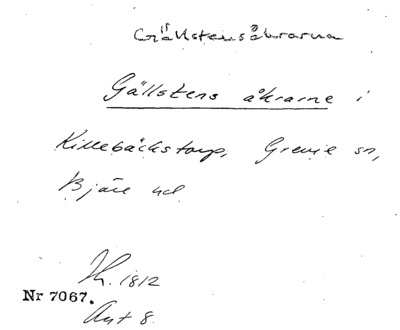 Gällstensåkrarna
Gällstens åkrarne i
Killebäckstorp, Grevie sn,
Bjäre hd
Th. 1812
Nr 7067.
Akt 8